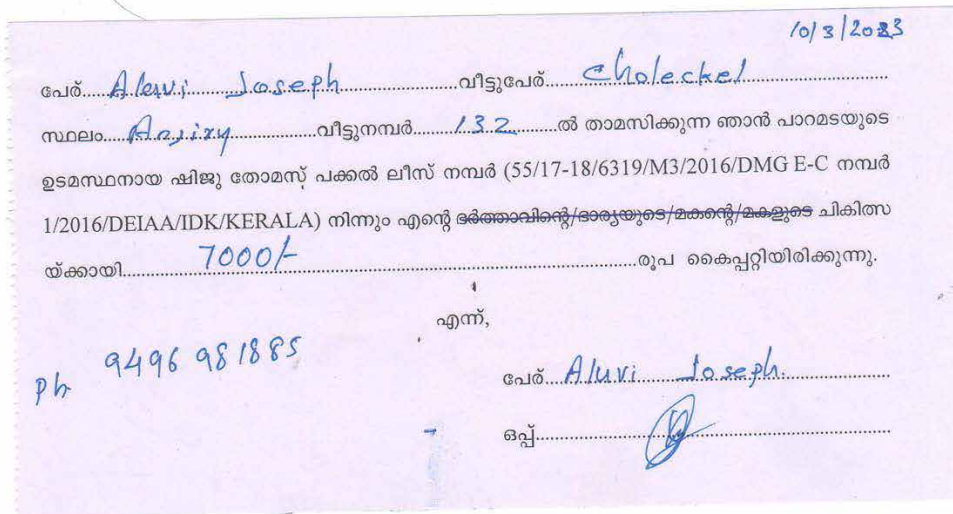 10/3/2023
പേര്.....Aluvi.....Joseph.....വീട്ടുപേര്.....Choleckel.....
സ്ഥലം.....Anjixy.....വീട്ടുനമ്പർ.....132.....ൽ താമസിക്കുന്ന ഞാൻ പാറമടയുടെ
ഉടമസ്ഥനായ ഷിജു തോമസ് പക്കൽ ലീസ് നമ്പർ (55/17-18/6319/M3/2016/DMG E-C നമ്പർ
1/2016/DEIAA/IDK/KERALA) നിന്നും എന്റെ ഭർത്താവിന്റെ/ഭാര്യയുടെ/മകന്റെ/മകളുടെ ചികിത്സ
യ്ക്കായി.....7000/-.....രൂപ കൈപ്പറ്റിയിരിക്കുന്നു.
എന്ന്,
Ph 9496 981885
പേര്.....Aluvi.....Joseph.....
ഒപ്പ്.....